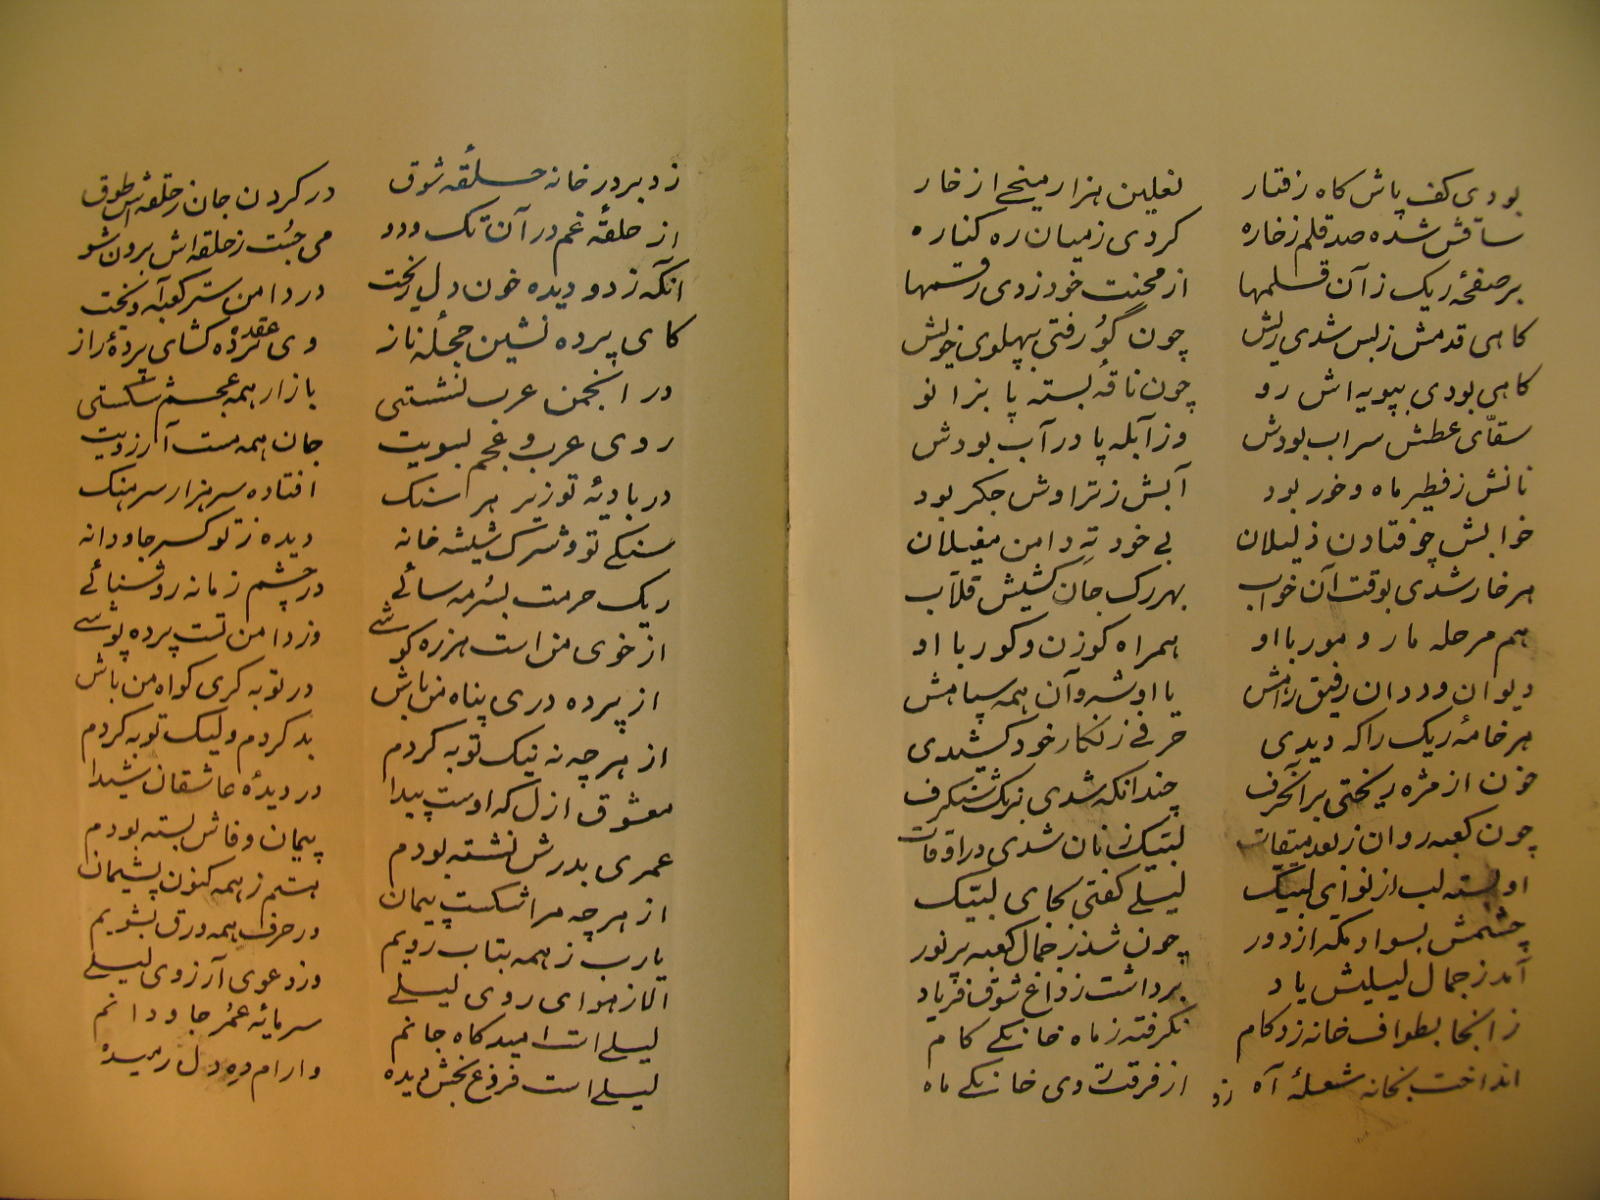 بودی کف پاش گاه رفتار نعلین هزار میخی از خار
ساقش شده صد قلم ز خاره کردی ز میان ره کناره
بر صفحهٔ ریک ز آن قلمها از محنت خود زدی رقمها
کاهی قدمش ز بس شدی ریش چون گور رفتی بپهلوی خویش
کاهی بودی بپویه اش رو چون ناقهٔ بسته پا بزانو
سقّای عطش سراب بودش وز آبله پا در آب بودش
نانش ز فطیر ماه و خور بود آبش ز تراوش جکر بود
خوابش چو فتادن ذلیلان بی خود تهِ دامن مغیلان
هر خار شدی بوقت آن خواب بهر رک جان کشیش قلاب
هم مرحله مار و مور با او همراه کوزن و کور با او
دیوان و ددان رفیق راهش با او شه و آن همه سپاهش
هر خامهٔ ریک را که دیدی حرفی ز نکار خود کشیدی
خون از مژه ریختی بر آنحرف چندانکه شدی بریک شنکرف
چون کعبه روان ز بعد میقات لبیک زنان شدی در اوقات
او بسته لب از نوای لبیک لیلی کفتی بجای لبیک
چشمش بسواد مکه از دور چون شد ز جمال کعبه پر نور
آمد ز جمال لیلیش یاد برداشت ز داغ شوق فریاد
ز آنجا بطواف خانه زد کام نکرفته ز ماه خانکی کام
انداخت بخانه شعلهٔ آه از فرقت وی خانکی ماه
زد
زد بر در خانه حلقهٔ شوق در کردن جان ز حلقه اش طوق
از حلقهٔ غم در آن تک و دو می جست ز حلقه اش برون شو
آنکه ز دو دیده خون دل ریخت در دامن ستر کعبه آویخت
کای پرده نشین حجلهٔ ناز وی عقده کشای پردهٔ راز
در انجمن عرب نشستی بازار همه عجم شکستی
روی عرب و عجم بسویت جان همه مست آرزویت
در بادیهٔ تو زیر هر سنک افتاده سر هزار سرهنک
سنکی تو و شرک شیشه خانه دیده ز تو کسر جاودانه
ریک حرمت بسرمه سائی در چشم زمانه روشنائی
از خوی من است هرزه کوشی وز دامن تست پرده پوشی
از پرده دری پناه من باش در توبه کری کواه من باش
از هر چه نه نیک توبه کردم بد کردم و لیک توبه کردم
معشوق ازل که اوست پیدا در دیدهٔ عاشقان شیدا
عمری بدرش نشسته بودم پیمان وفاش بسته بودم
از هر چه مرا شکست پیمان هستم ز همه کنون پشیمان
یارب ز همه بتاب رویم ور حرف همه ورق بشویم
الا ز هوای روی لیلی وز دعوی آرزوی لیلی
لیلی است امیدکاه جانم سرمایهٔ عمر جاودانم
لیلی است فروغ بخش دیده وارام ده دل رمیده